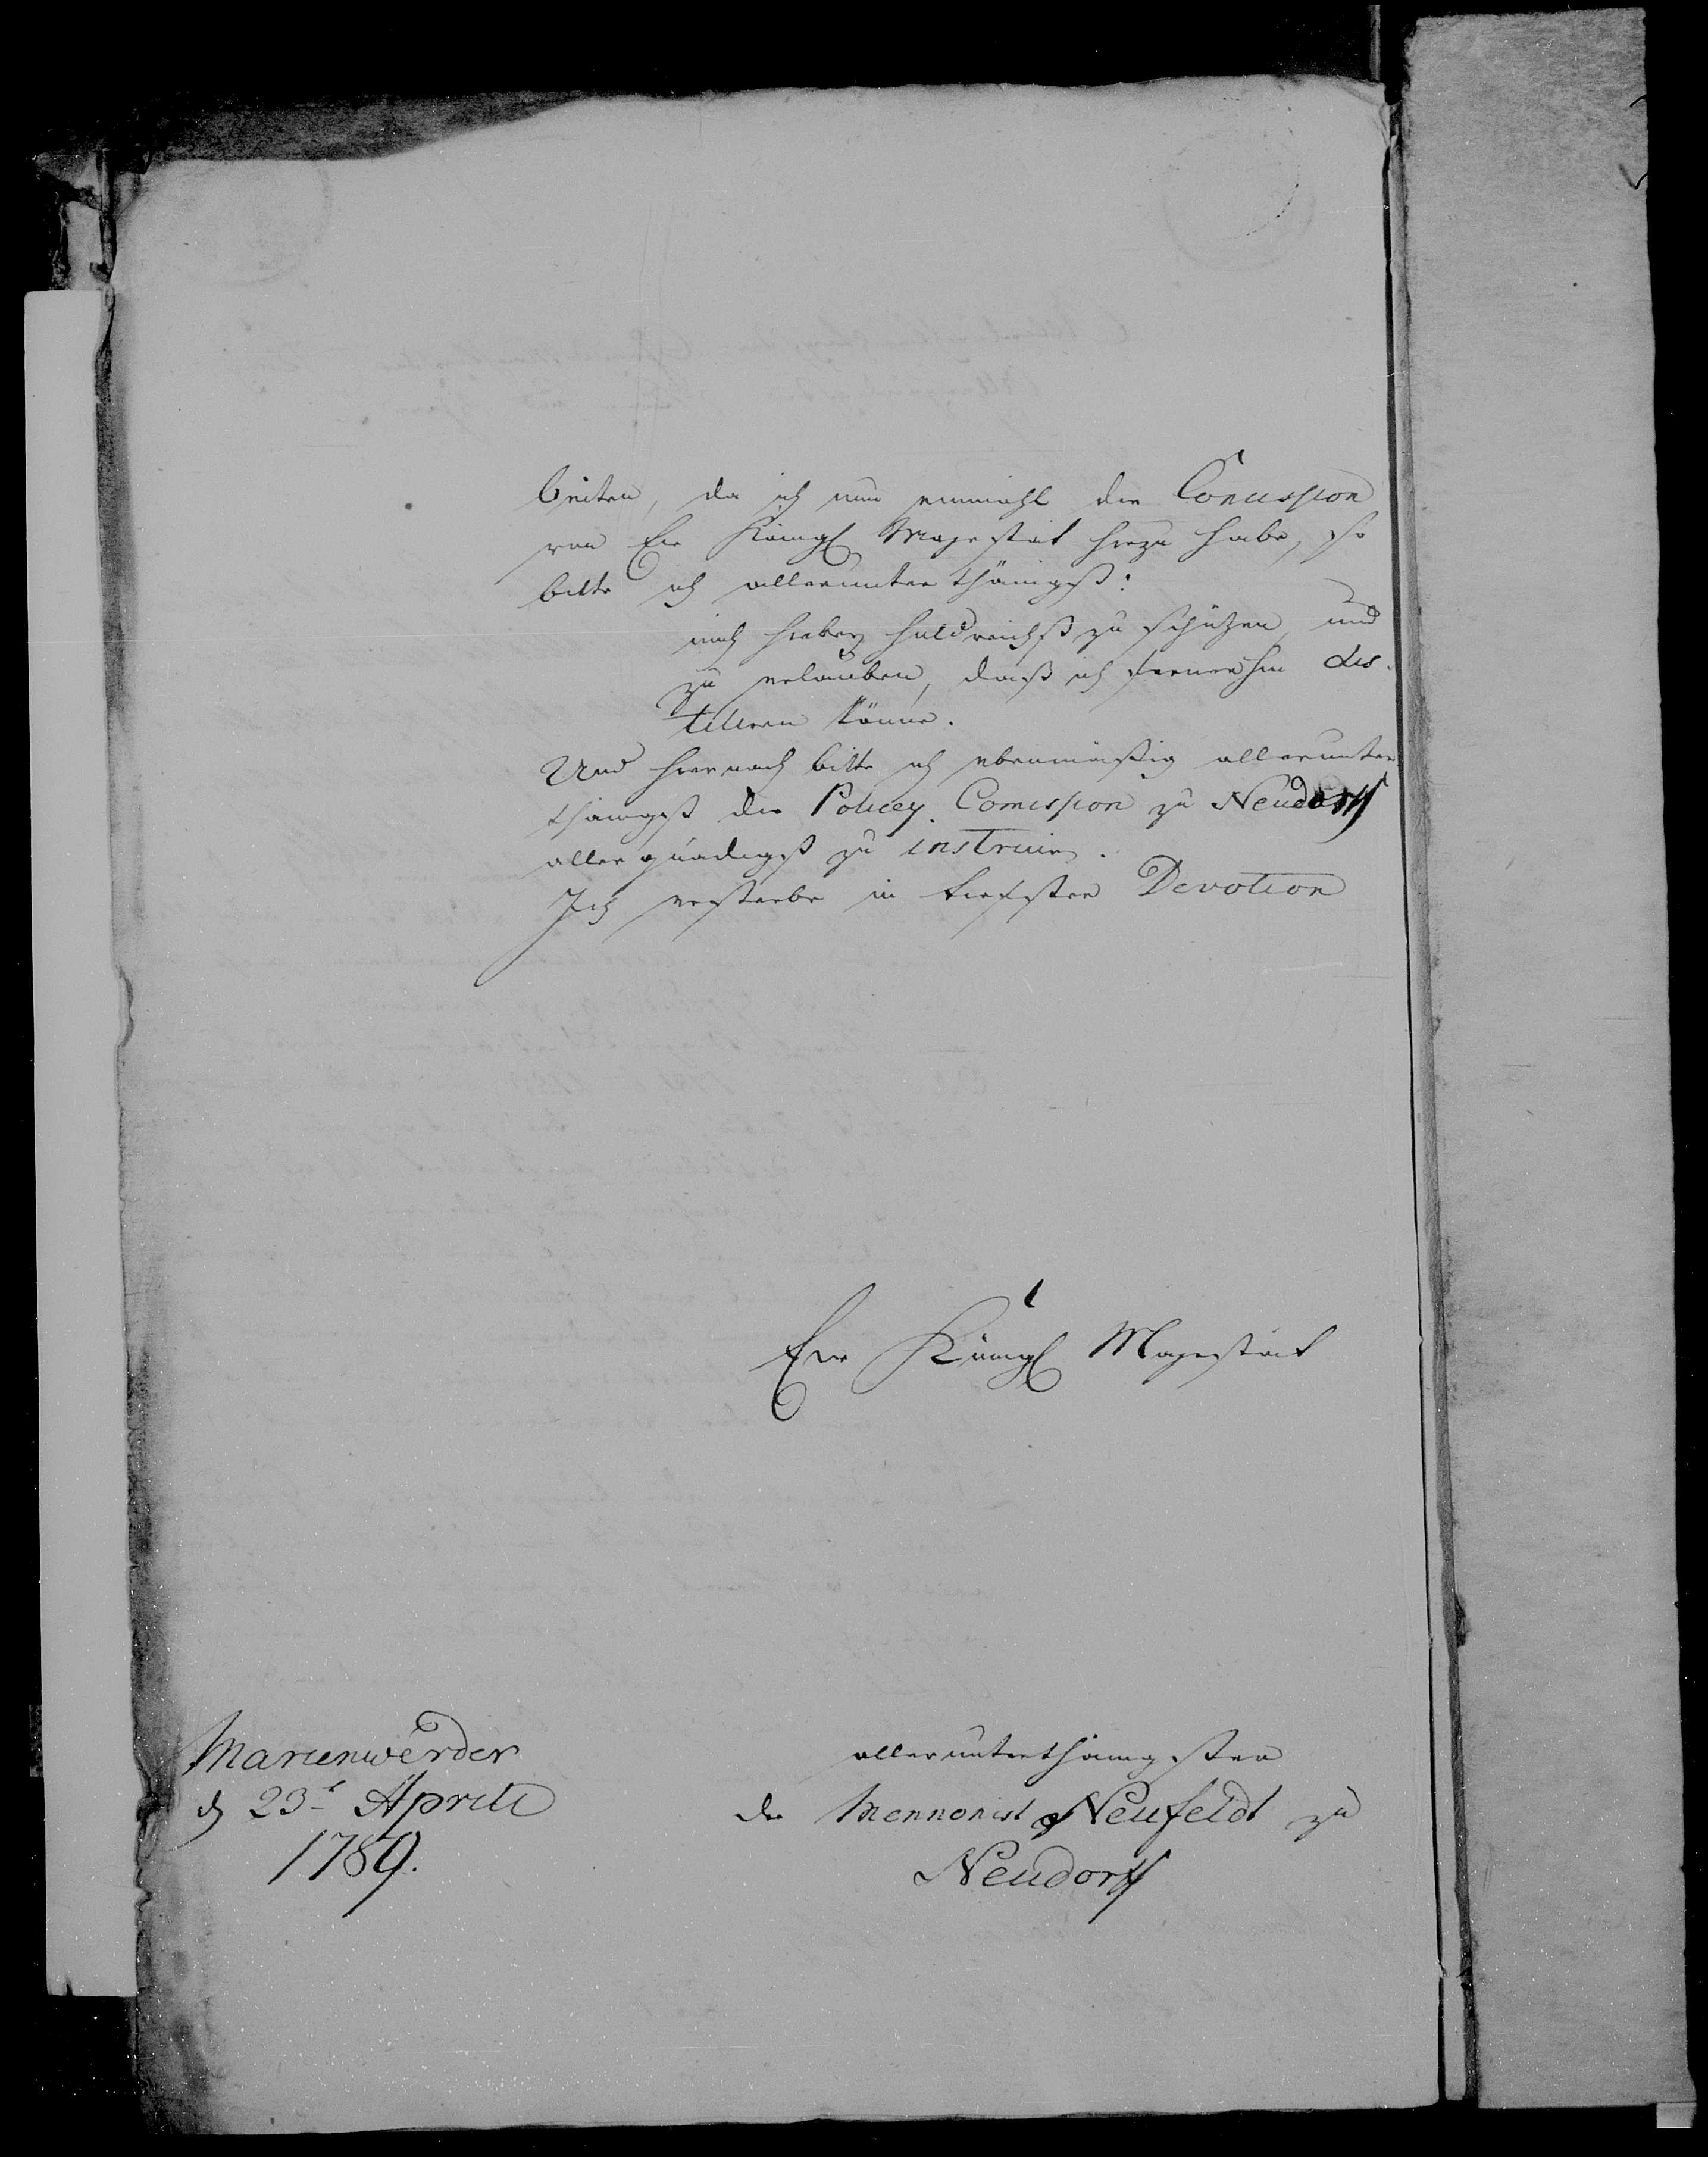 beiten, da ich nun einmahl die Concession
von Ew Königl Majestät hiezu habe, so
bitte ich allerunterthänigst:
mich hiebey huldreichst zu schützen, und
zu erlauben, daß ich fernerhin dis-
tiliren könne.
Und hiernach bitte ich ebenmäßig allerunter
thänigst die Policey Comission zu Neudorff
allergnädigst zu instruiren.
Ich ersterbe in tiefster Devotion
Ew Königl Majestät
Marienwerder
d 23t Aprill
1789.
allerunterthänigster
der Mennonist Neufeldt zu
Neudorff